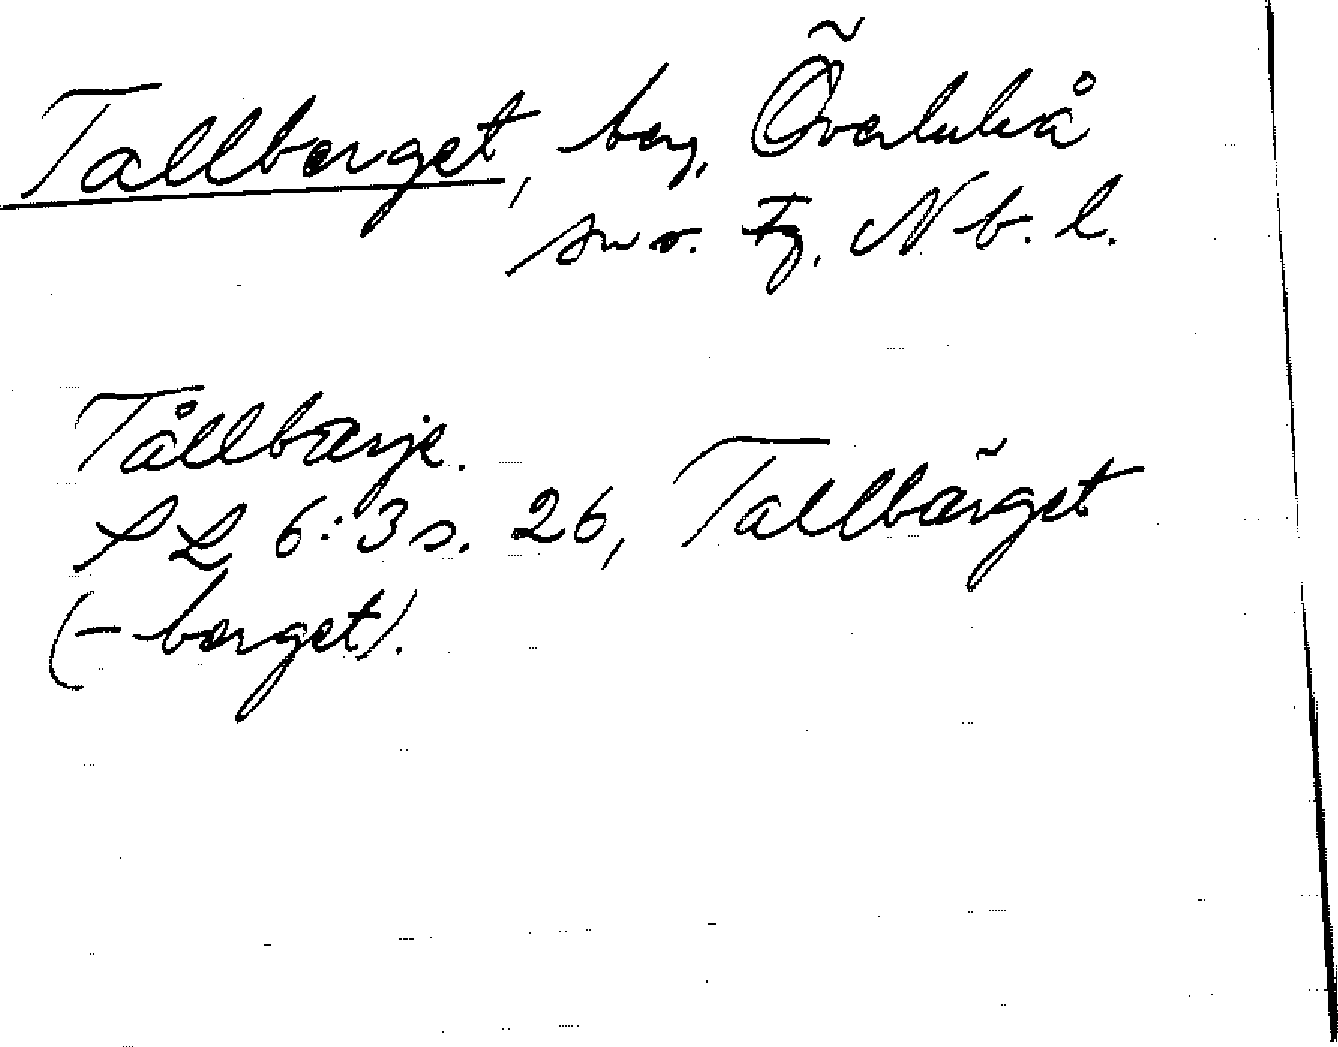 Tallberget, berg, Överluleå
sn o. Tg, N. b. l.
Tållbærje.
SL 6:3 s. 26, Tallbärget
(-berget).